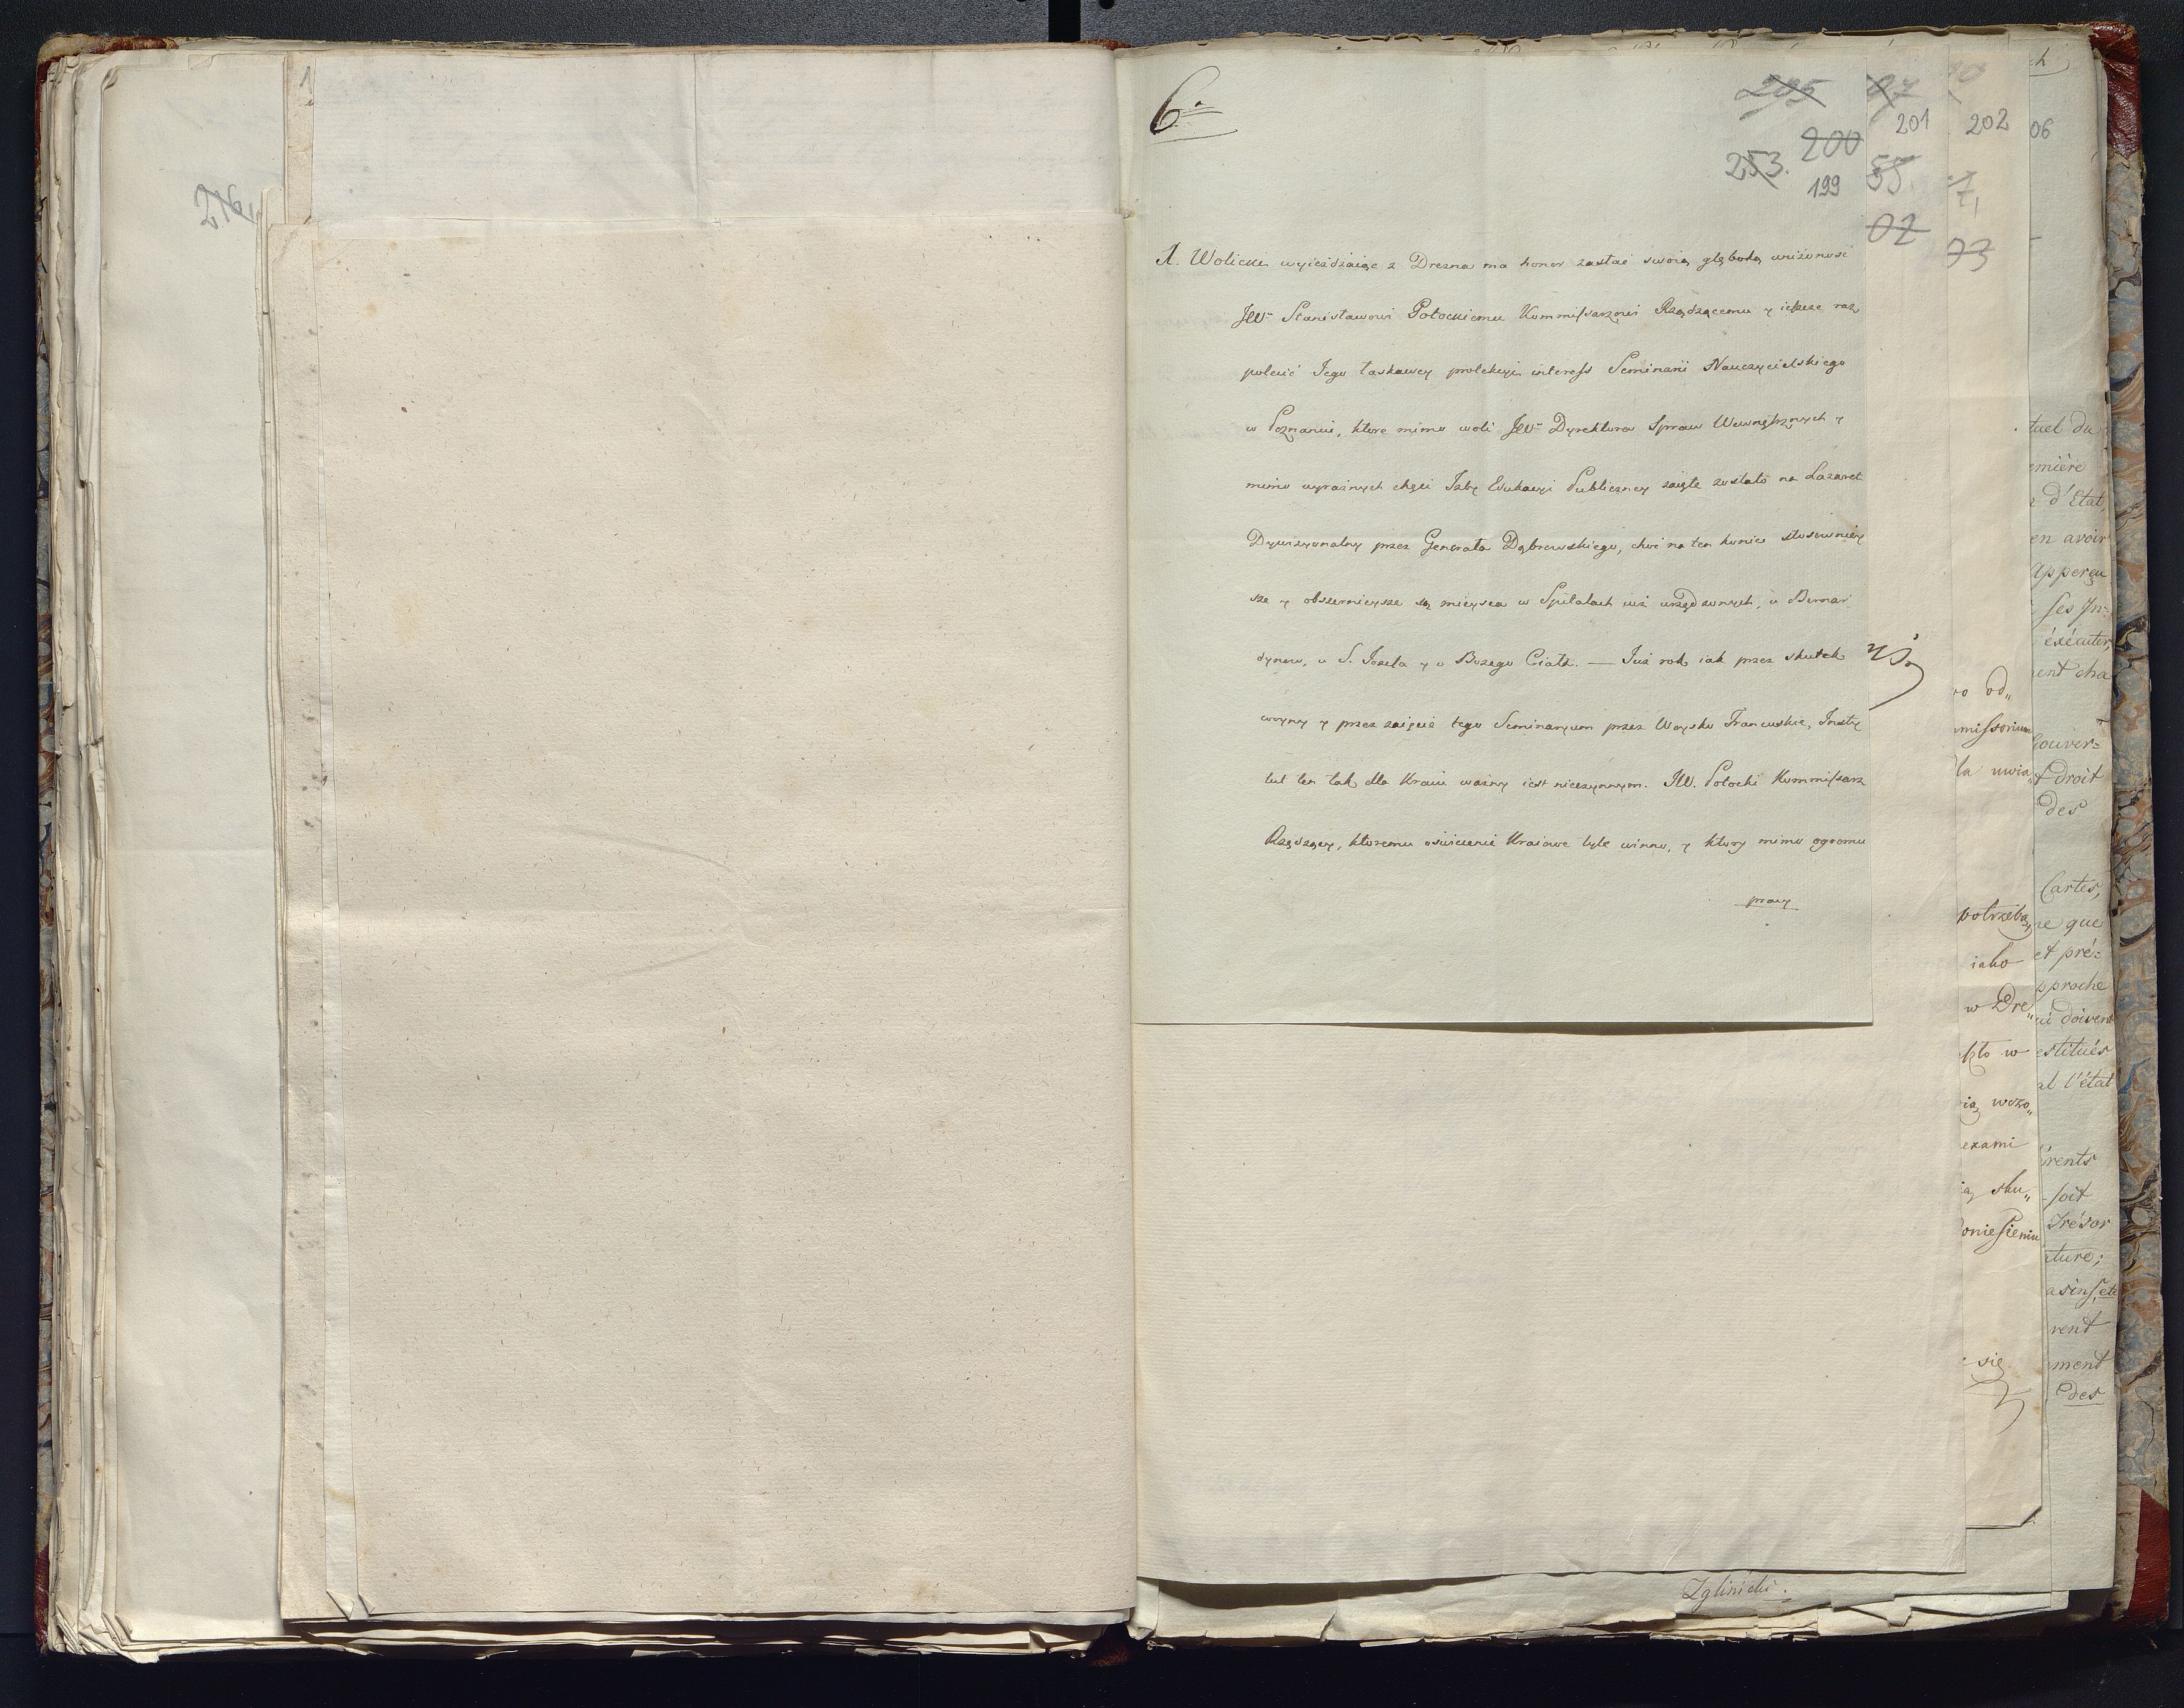 216.
6a
205
200
253.
199
201
55
02
202
73
06
X. Wolicki wyieżdżaiąc z Drezna ma honor zostać swoią głęboką uniżoność
JW. Stanisławowi Potockiemu Kommissarzowi Rządzącemu y ieszcze raz
polecić Jego łaskawey protekcyi interess Seminarii Nauczycielskiego
w Poznaniu, które mimo woli JW. Dyrektora Spraw Wewnętrznych y
mimo wyraźnych chęci Izby Edukacyi Publiczney zaięte zostało na Lazaret
Dywizyonalny przez Generała Dąbrowskiego, choć na ten koniec stosowniey
sze y obszernieysze są mieysca w Szpitalach już urządzonych, u Bernar
dynów, u S. Józefa y u Bożego Ciała. — Już rok iak przez skutek
woyny y przez zaięcie tego Seminaryum przez Woysko Francuskie, Insty
tut ten tak dla Kraiu ważny iest nieczynnym. JW. Potocki Kommissarz
Rządzący, któremu oświecenie Kraiowe tyle winno, y który mimo ogromu
pracy
ro od„
missorium
la uwia„
potrzeba„
iako
w Dre„
wczo„
exami
sku„
oniesieniu
się
tuel du
emière
d'Etat
en avoir
Apperçu
ses In=
éxécuter,
ent cha
Gouver=
droit
des
Cartes,
ne que
et pré=
pproche
ui doivent
estitués
al l'état
rents
soit
Trésor
ature;
asins, etc
rent
ment
des
Zgliniecki.